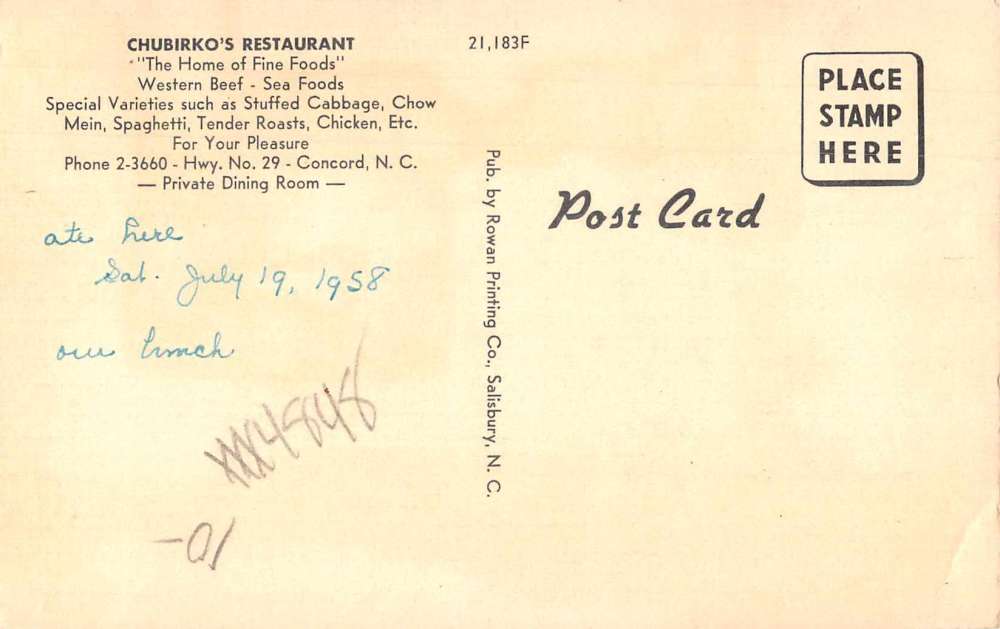 CHUBIRKO'S RESTAURANT
"The Home of Fine Foods"
Western Beef - Sea Foods
Special Varieties such as Stuffed Cabbage, Chow
Mein, Spaghetti, Tender Roasts, Chicken, Etc.
For Your Pleasure
Phone 2-3660 - Hwy. No. 29 - Concord, N. C.
— Private Dining Room —
ate here
Sat. July 19, 1958
our lunch
XXX4848
21,183F
Pub. by Rowan Printing Co., Salisbury, N. C.
Post Card
PLACE
STAMP
HERE